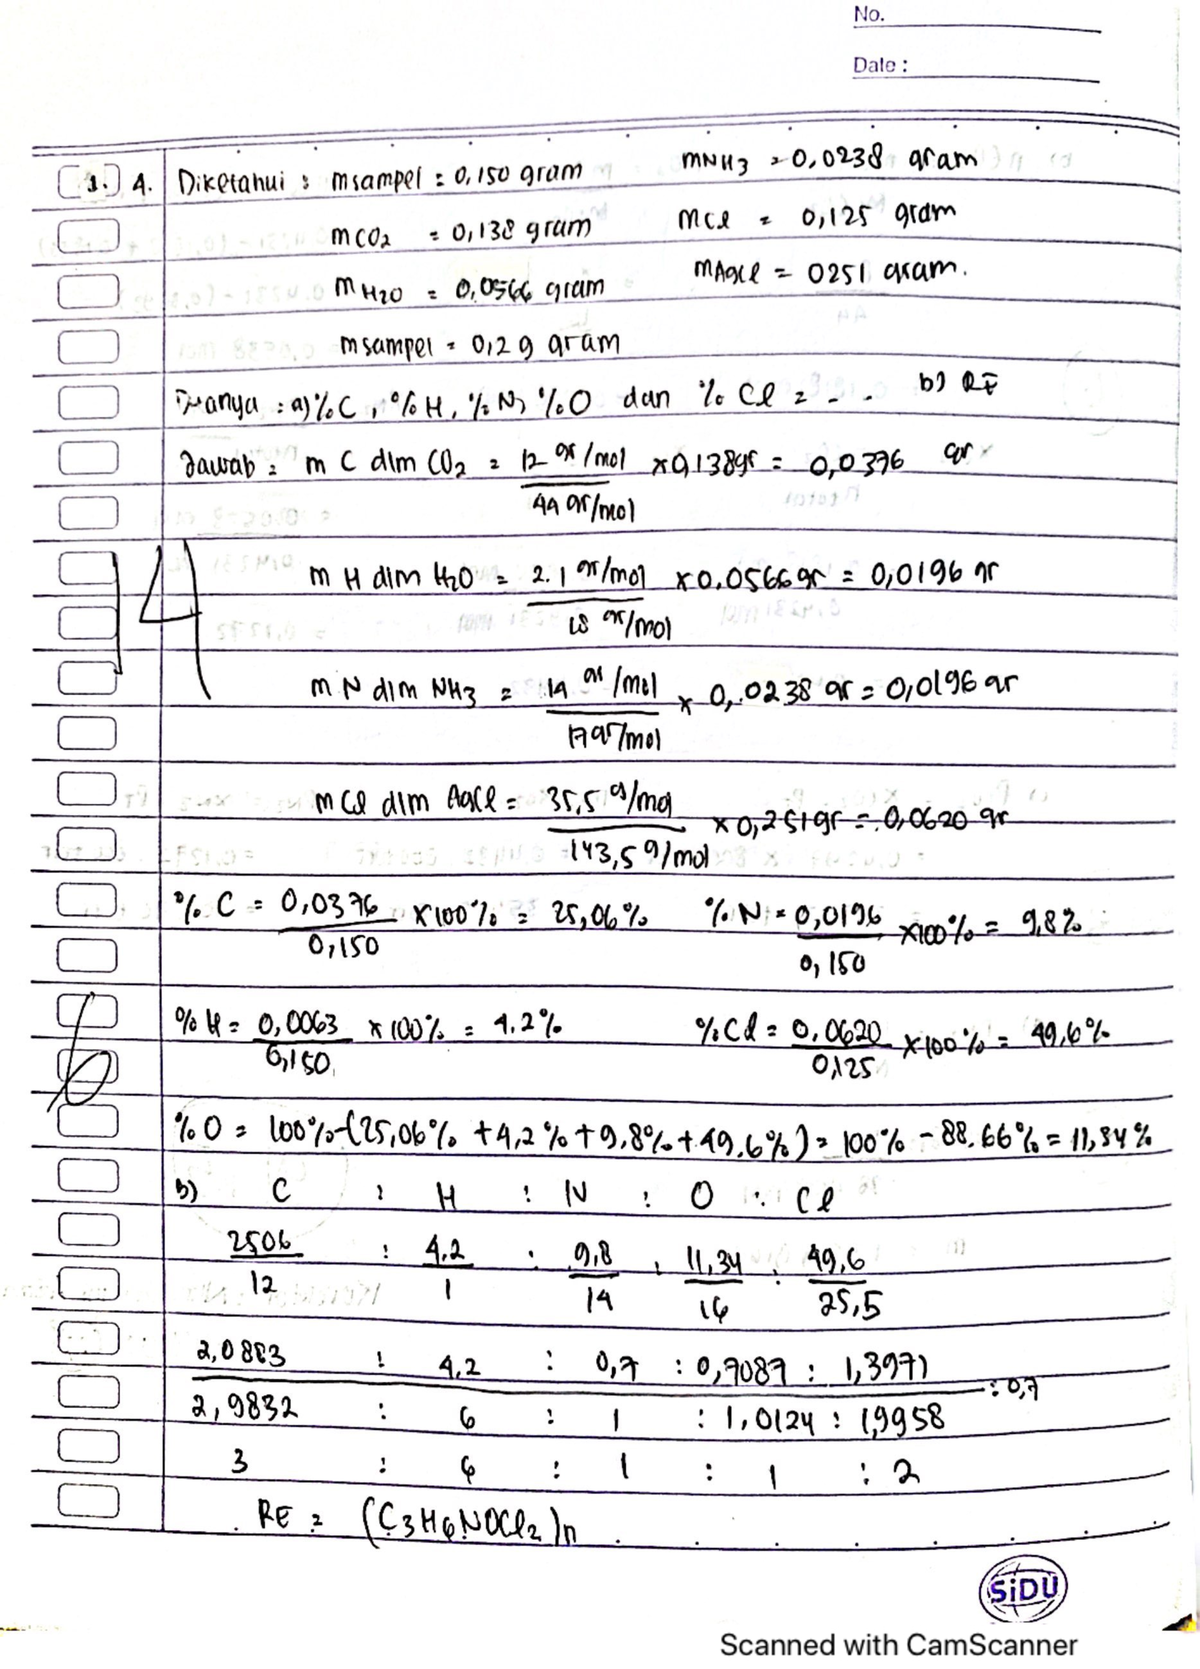 No.
Date :
1. 4. Diketahui : msampel = 0,150 gram mNH3 = 0,0238 gram
mCO2 = 0,138 gram mCl = 0,125 gram
mH2O = 0,0566 gram mAgCl = 0251 gram.
msampel = 0,29 gram
Ditanya : a) %C, %H, %N, %O dan % Cl = - - b) RE
Jawab = m C dlm CO2 = 12 gr/mol / 44 gr/mol x 0,138gr = 0,0376 gr
m H dlm H2O = 2.1 gr/mol / 18 gr/mol x 0.0566 gr = 0,0196 gr
14
m N dlm NH3 = 14 gr/mol / 17 gr/mol x 0,0238 gr = 0,0196 gr
m Cl dlm AgCl = 35,5 g/mol / 143,5 g/mol x 0,251 gr = 0,0620 gr
% C = 0,0376 / 0,150 x 100% = 25,06% % N = 0,0196 / 0,150 x100% = 9,8%
% H = 0,0063 / 0,150 x 100% = 4.2% % Cl = 0,0620 / 0,125 x 100% = 49,6%
% O = 100%-(25,06% + 4,2% + 9.8% + 49.6%) = 100% - 88.66% = 11,34%
b) C : H : N : O : Cl
2506 / 12 : 4.2 / 1 : 9,8 / 14 : 11,34 / 16 : 49,6 / 25,5
2,0883 : 4,2 : 0,7 : 0,7087 : 1,3971 : 0,7
2,9832 : 6 : 1 : 1,0124 : 1,9958
3 : 6 : 1 : 1 : 2
RE = (C3H6NOCl2)n
SiDU
Scanned with CamScanner